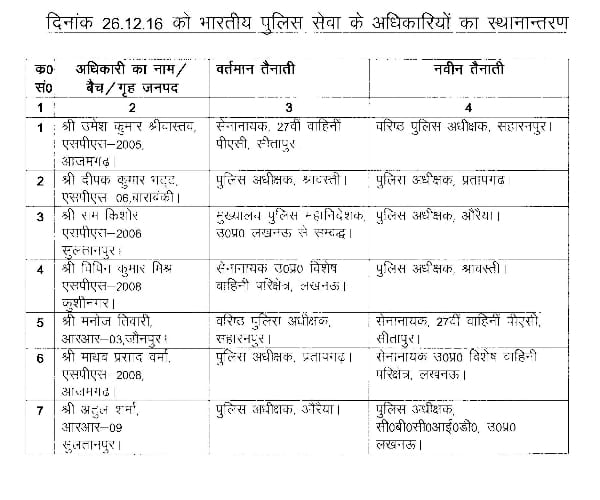 दिनांक 26.12.16 को भारतीय पुलिस सेवा के अधिकारियों का स्थानान्तरण
क0 सं0 | अधिकारी का नाम/ बैच/गृह जनपद | वर्तमान तैनाती | नवीन तैनाती
1 | 2 | 3 | 4
1 | श्री उमेश कुमार श्रीवास्तव, एसपीएस–2005, आजमगढ़। | सेनानायक, 27वीं वाहिनीं पीएसी, सीतापुर | वरिष्ठ पुलिस अधीक्षक, सहारनपुर।
2 | श्री दीपक कुमार भट्ट, एसपीएस 06,बाराबंकी। | पुलिस अधीक्षक, श्रावस्ती। | पुलिस अधीक्षक, प्रतापगढ।
3 | श्री राम किशोर एसपीएस–2006 सुलतानपुर। | मुख्यालय पुलिस महानिदेशक, उ0प्र0 लखनऊ से सम्बद्ध। | पुलिस अधीक्षक, औरैया।
4 | श्री विपिन कुमार मिश्र एसपीएस–2008 कुशीनगर। | सेनानायक उ0प्र0 विशेष वाहिनी परिक्षेत्र, लखनऊ। | पुलिस अधीक्षक, श्रावस्ती।
5 | श्री मनोज तिवारी, आरआर–03,जौनपुर। | वरिष्ठ पुलिस अधीक्षक, सहारनपुर। | सेनानायक, 27वीं वाहिनीं पीएसी, सीतापुर।
6 | श्री माधव प्रसाद वर्मा, एसपीएस 2008, आजमगढ। | पुलिस अधीक्षक, प्रतापगढ़। | सेनानायक उ0प्र0 विशेष वाहिनी परिक्षत्र, लखनऊ।
7 | श्री अतुल शर्मा, आरआर–09 सुलतानपुर। | पुलिस अधीक्षक, औरैया। | पुलिस अधीक्षक, सी0बी0सी0आई0डी0, उ0प्र0 लखनऊ।